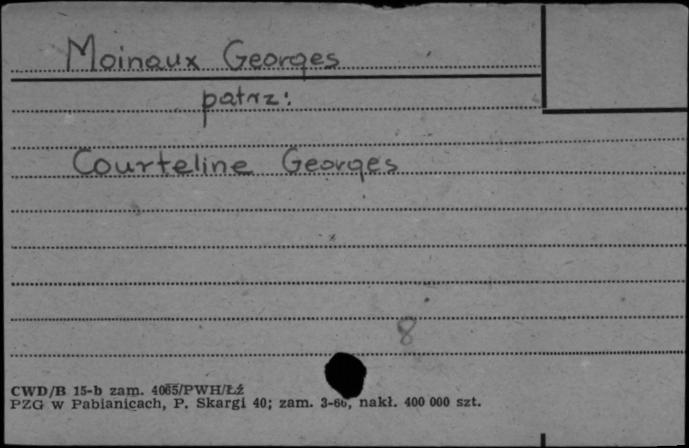 Moinaux Georges
patrz:
Courteline Georges
8
CWD/B 15-b zam. 4065/PWH/Łź
PZG w Pabianicach, P. Skargi 40; zam. 3-66, nakł. 400 000 szt.